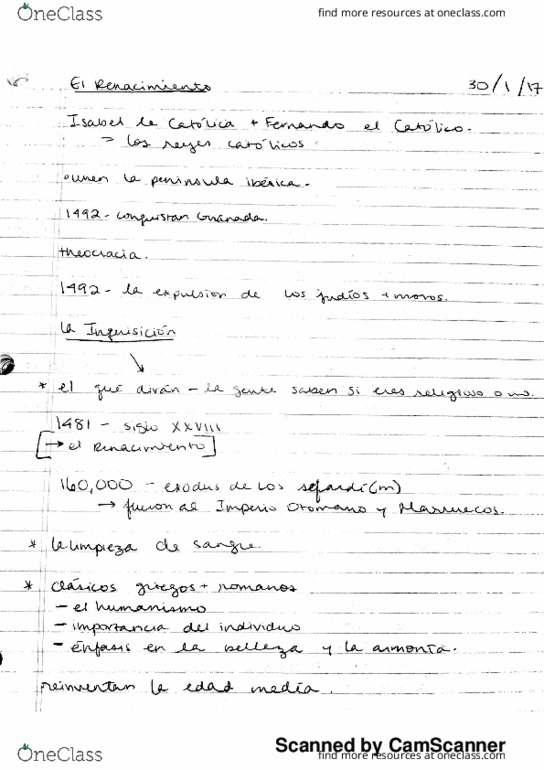 OneClass
find more resources at oneclass.com
El Renacimiento 30/1/17
Isabel la Católica + Fernando el Católico.
→ los reyes católicos
unen la península ibérica.
1492 - conquistan Granada.
theocracia.
1492 - la expulsion de los judíos + moros.
la Inquisición
* el qué dirán - la gente saben si eres religioso o no.
1481 - siglo XXVIII
[→ el Renacimiento]
160,000 - exodus de los sefardí(m)
→ fueron al Imperio Otomano y Marruecos.
* la limpieza de sangre.
* clásicos griegos + romanos
- el humanismo
- importancia del individuo
- énfasis en la belleza y la armonía.
reinventan la edad media.
Scanned by CamScanner
OneClass
find more resources at oneclass.com